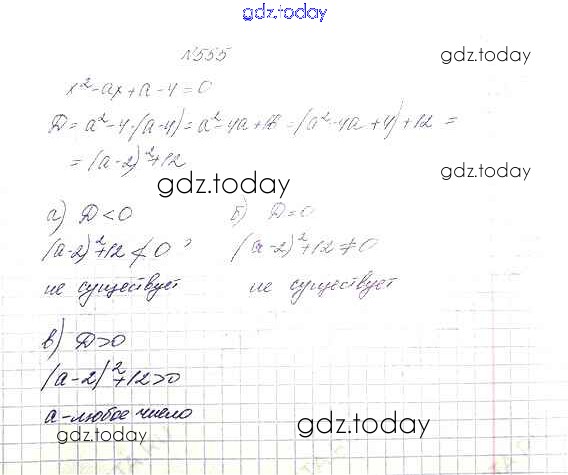 gdz.today
№555
gdz.today
x²-ax+a-4=0
D=a²-4·(a-4)=a²-4a+16=(a²-4a+4)+12=
=(a-2)²+12
gdz.today
gdz.today
а) D<0 б) D=0
(a-2)²+12≮0, (a-2)²+12≠0
не существует не существует
в) D>0
(a-2)²+12>0
a-любое число
gdz.today
gdz.today